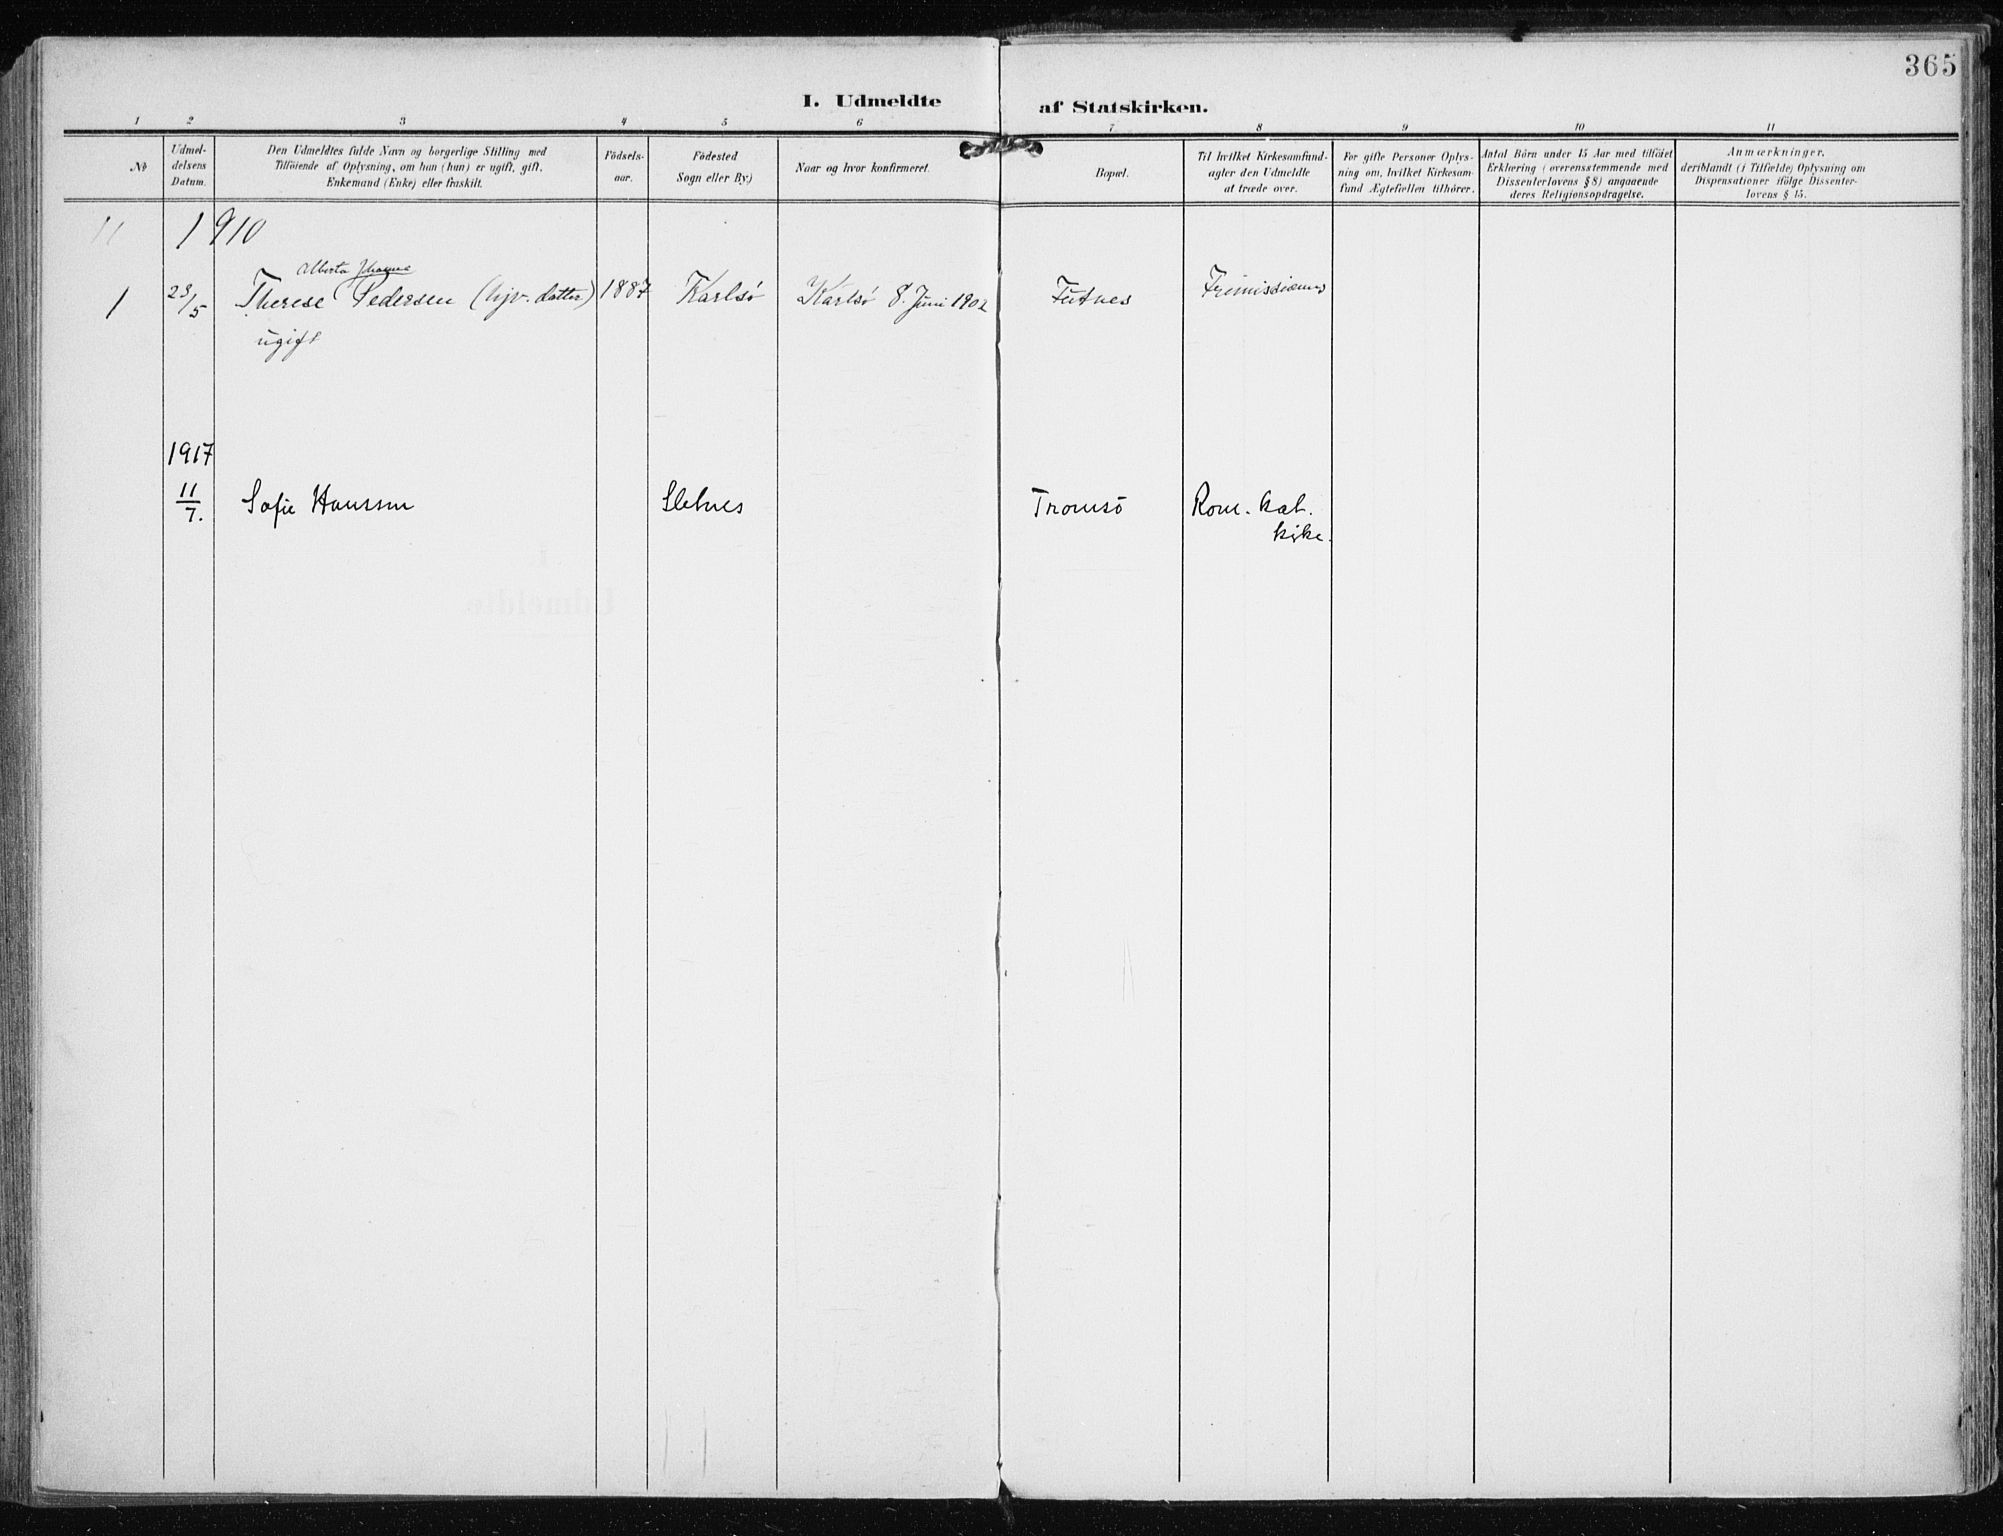 365
I. Udmeldte af Statskirken.
1 2 3 4 5 6 7 8 9 10 11
№
Udmel-
delsens
Datum.
Den Udmeldtes fulde Navn og borgerlige Stilling med
Tilföiende af Oplysning, om han (hun) er ugift, gift,
Enkemand (Enke) eller fraskilt.
Födsels-
aar.
Födested
Sogn eller By.)
Naar og hvor konfirmeret.
Bopæl.
Til hvilket Kirkesamfund-
agter den Udmeldte
at træde over.
For gifte Personer Oplys-
ning om, hvilket Kirkesam-
fund Ægtefællen tilhörer.
Antal Börn under 15 Aar med tilföiet
Erklæring (overensstemmende med
Dissenterlovens § 8) angaaende
deres Religionsopdragelse.
Anmærkninger,
deriblandt (i Tilfælde) Oplysning om
Dispensationer ifölge Dissenter-
lovens § 15.
11 1910
Alberta Johanna
1 23/5 Therese Pedersen (hjv. datter) 1887 Karlsö Karlsö 8. Juni 1902 Futnes
ugift
1917
11/7. Sofie Hanssen Sletnes Tromsö Rom. kat.
kirke.
I.
Udmeldte